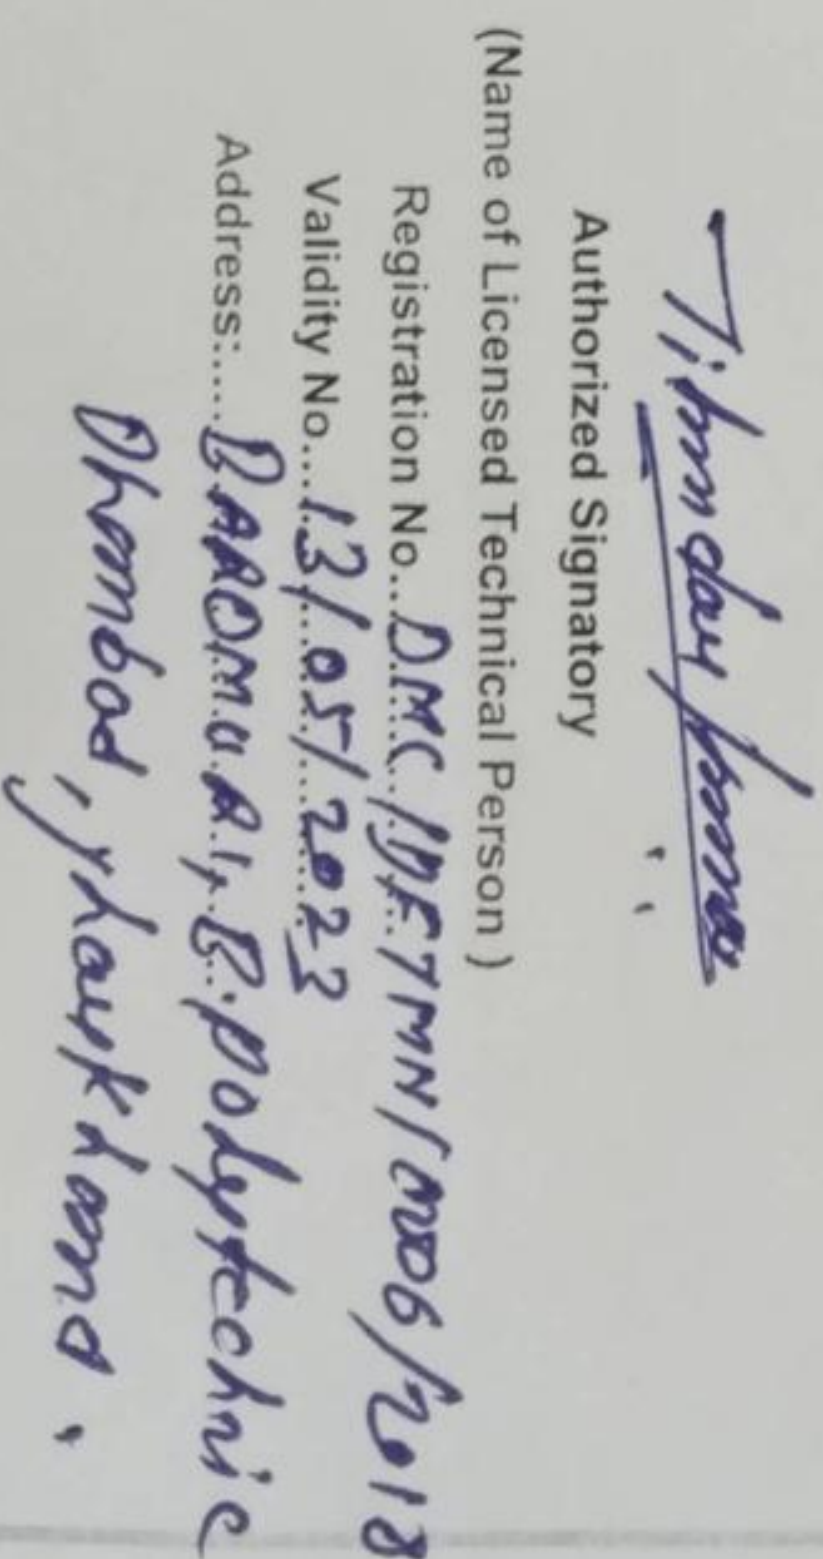 Authorized Signatory
(Name of Licensed Technical Person )
Registration No...DMC / /2018
Validity No...13/05/2023
Address:.... B.polytechnic
Dhanbad, Jharkhand.